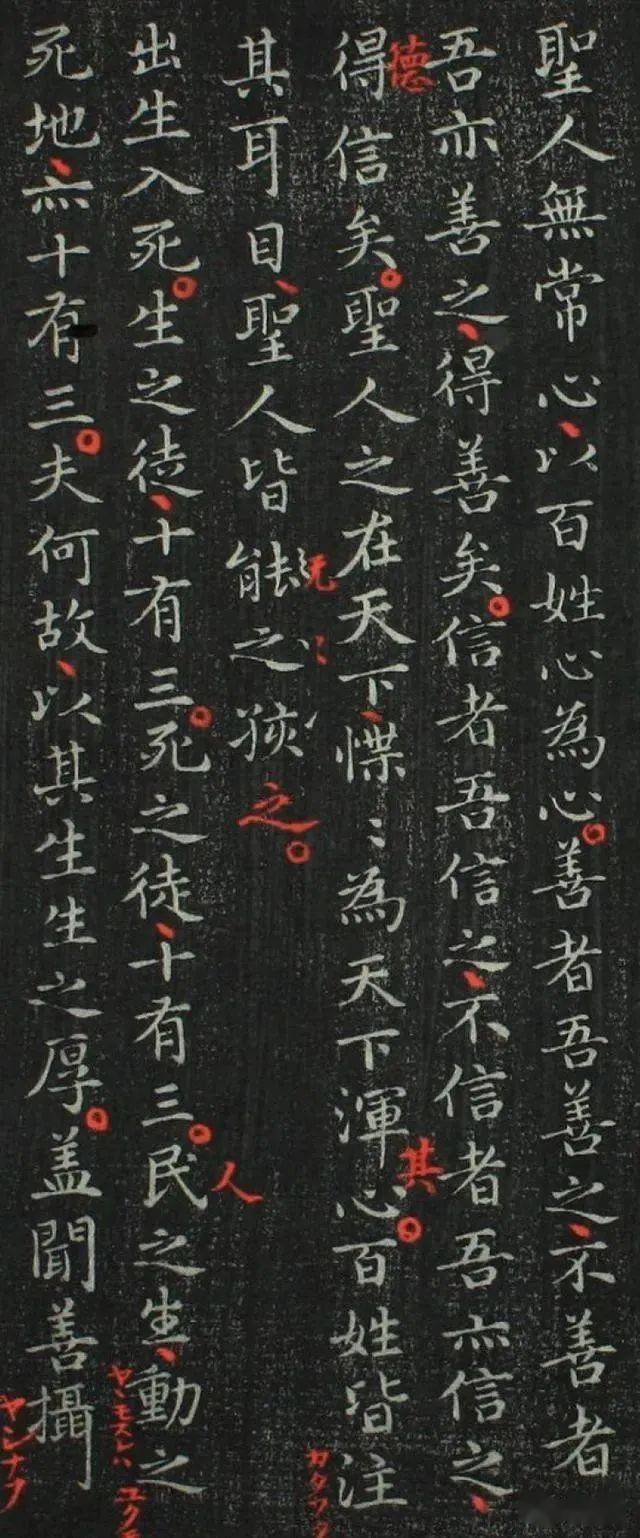 聖人無常心、以百姓心為心。善者吾善之、不善者
吾亦善之、得善矣。信者吾信之、不信者吾亦信之、
德
得信矣。聖人之在天下、惵〻為天下渾心。百姓皆注
其
其耳目、聖人皆能之孩之。
无
出生入死。生之徒、十有三。死之徒、十有三。民之生、動之
人
死地、亦十有三。夫何故、以其生生之厚。盖聞善攝
ヤシナフ